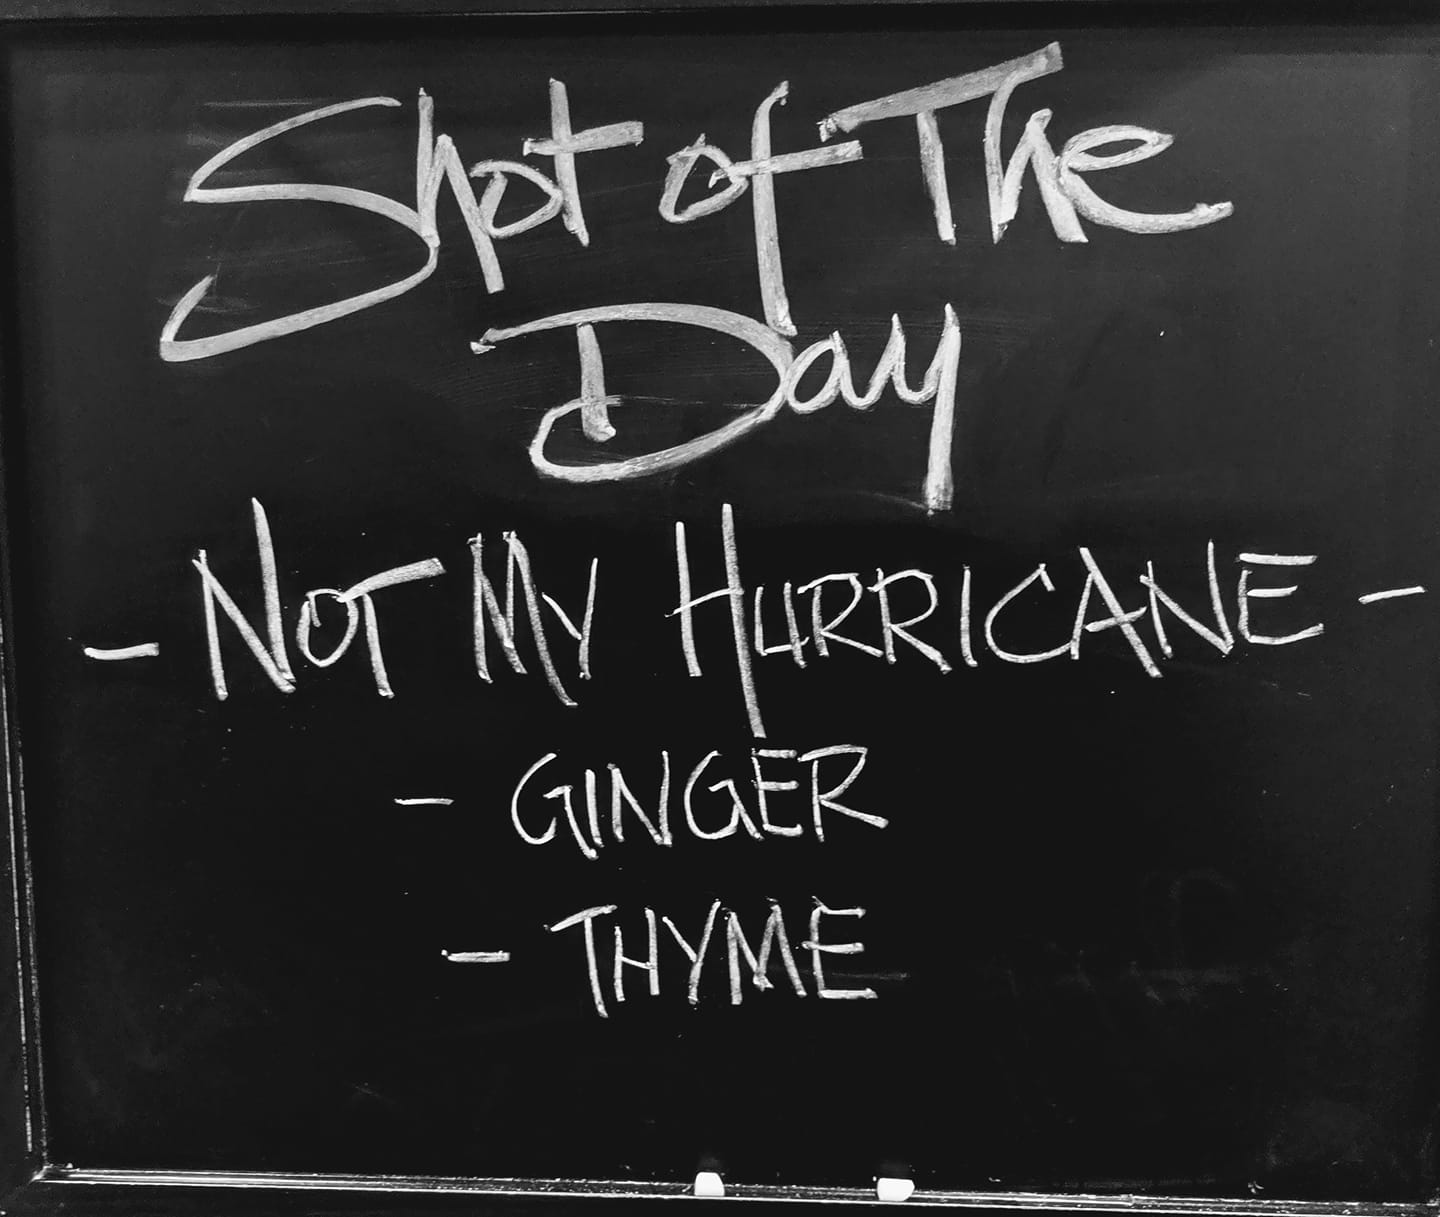 Shot of The
Day
- NOT MY HURRICANE -
- GINGER
- THYME